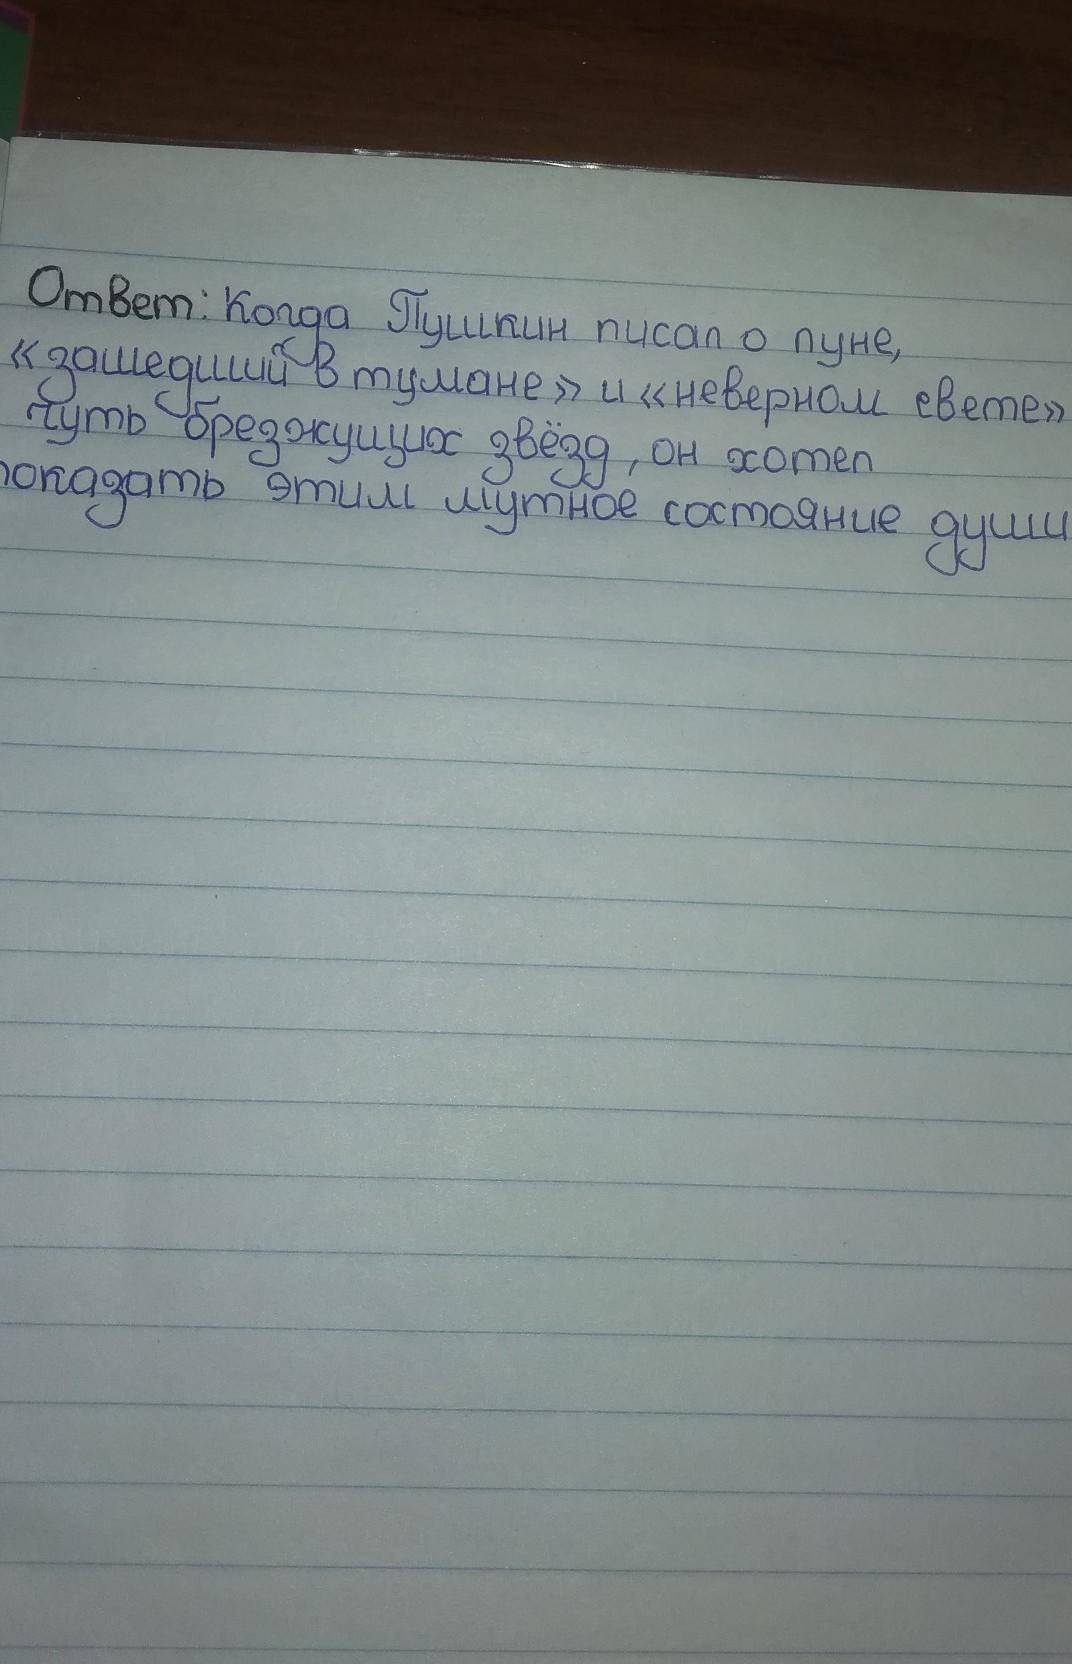 Ответ: Когда Пушкин писал о луне,
«зашедший в тумане» и «неверном свете»
чуть брезжущих звёзд, он хотел
показать этим мутное состояние души